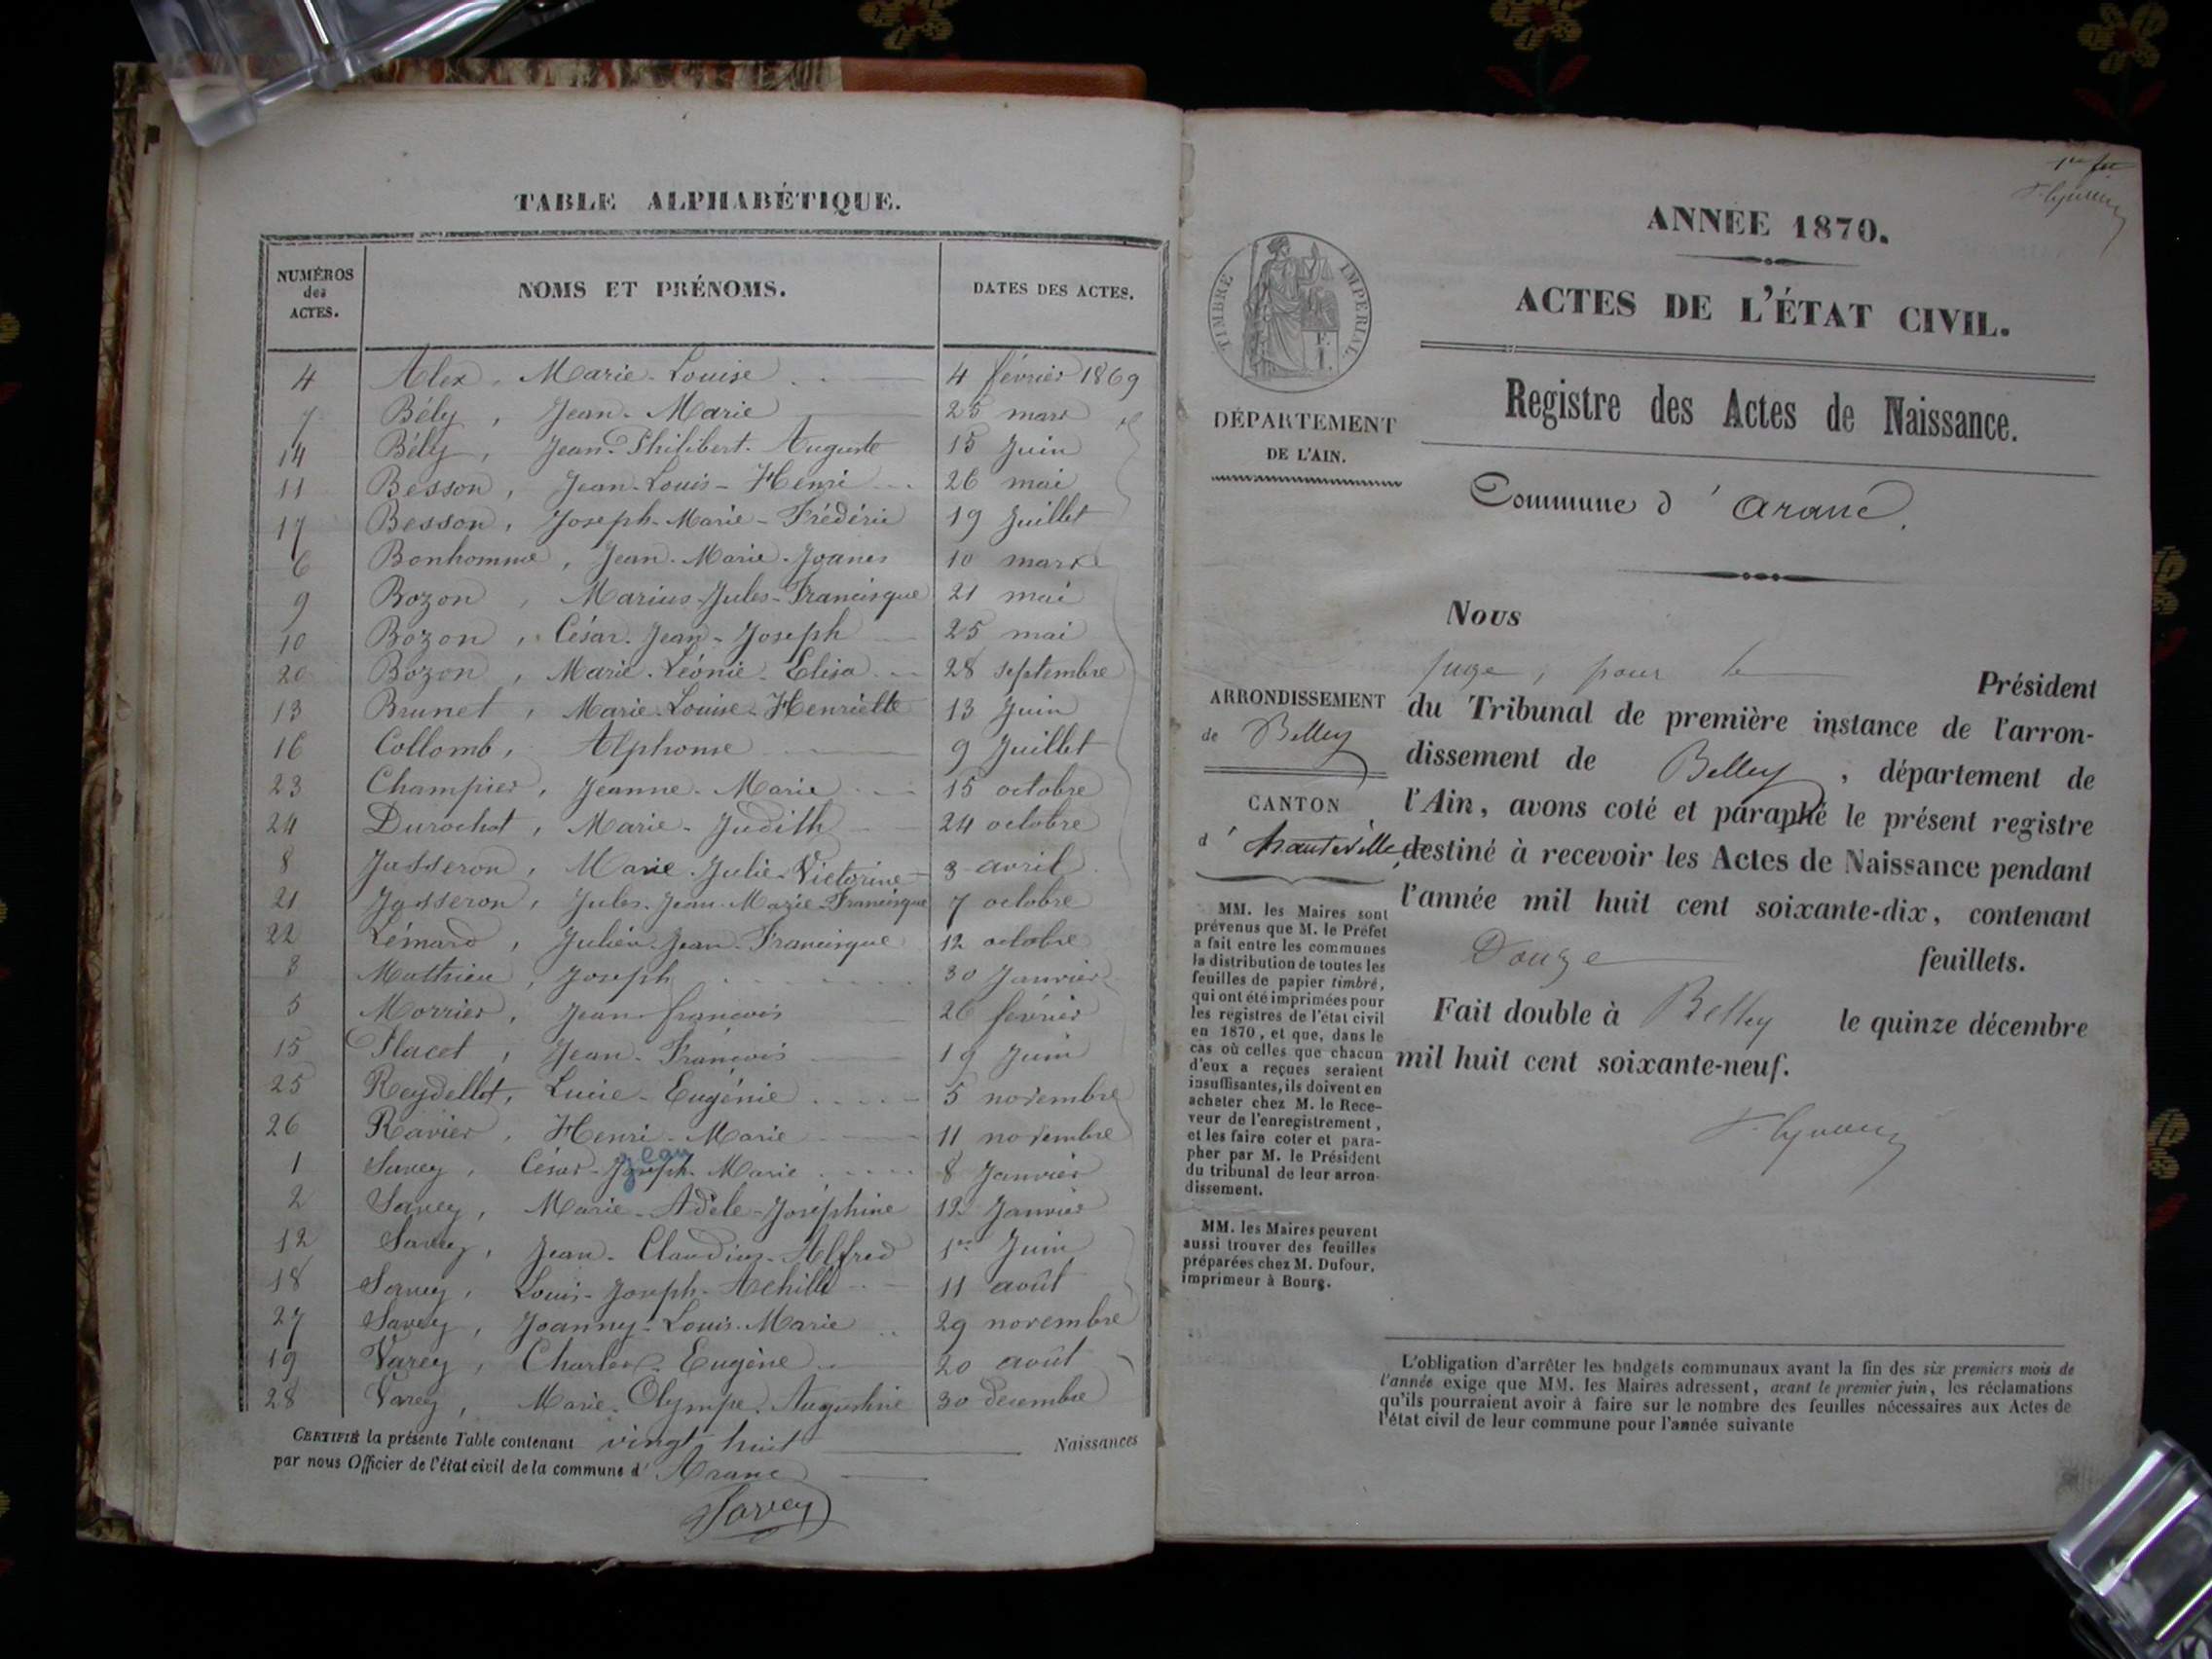 TABLE ALPHABÉTIQUE.
NUMÉROS des ACTES. NOMS ET PRÉNOMS. DATES DES ACTES.
4 Alex, Marie-Louise 4 février 1869
7 Bély, Jean-Marie 25 mars
14 Bély, Jean-Philibert-Auguste 15 Juin
11 Besson, Jean-Louis-Henri 26 mai
17 Besson, Joseph-Marie-Frédéric 19 Juillet
6 Bonhomme, Jean-Marie-Joanes 10 mars
9 Bozon, Marius-Jules-Francisque 21 mai
10 Bozon, César-Jean-Joseph 25 mai
20 Bozon, Marie-Léonie-Elisa 28 septembre
13 Brunet, Marie-Louise-Henriette 13 Juin
16 Collomb, Alphonse 9 Juillet
23 Champier, Jeanne-Marie 15 octobre
24 Durochat, Marie-Judith 24 octobre
8 Jasseron, Marie-Julie-Victorine 3 avril
21 Jasseron, Jules-Jean-Marie-Francisque 7 octobre
22 Lémard, Julien-Jean-Francisque 12 octobre
3 Mathieu, Joseph 30 Janvier
5 Morrier, Jean-françois 26 février
15 Placet, Jean-François 19 Juin
25 Reydellet, Lucie-Eugénie 5 novembre
26 Ravier, Henri-Marie 11 novembre
jean
1 Savey, César-Joseph-Marie 8 Janvier
2 Savey, Marie-Adèle-Joséphine 12 Janvier
12 Savey, Jean-Claudius-Alfred 1er Juin
18 Savey, Louis-Joseph-Achille 11 août
27 Savey, Joanny-Louis-Marie 29 novembre
19 Varey, Charles-Eugène 20 août
28 Varey, Marie-Olympe-Augustine 30 décembre
CERTIFIÉ la présente Table contenant vingt huit Naissances
par nous Officier de l'état civil de la commune d' Aranc
Savey
ANNÉE 1870.
ACTES DE L'ÉTAT CIVIL.
TIMBRE IMPÉRIAL
Registre des Actes de Naissance.
DÉPARTEMENT
DE L'AIN.
Commune d'Aranc.
Nous
Juge, pour le Président
du Tribunal de première instance de l'arron-
dissement de Belley, département de
l'Ain, avons coté et paraphé le présent registre
destiné à recevoir les Actes de Naissance pendant
l'année mil huit cent soixante-dix, contenant
Douze feuillets.
Fait double à Belley le quinze décembre
mil huit cent soixante-neuf.
ARRONDISSEMENT
de Belley
CANTON
d' hauteville
MM. les Maires sont
prévenus que M. le Préfet
a fait entre les communes
la distribution de toutes les
feuilles de papier timbré,
qui ont été imprimées pour
les registres de l'état civil
en 1870, et que, dans le
cas où celles que chacun
d'eux a reçues seraient
insuffisantes, ils doivent en
acheter chez M. le Rece-
veur de l'enregistrement,
et les faire coter et para-
pher par M. le Président
du tribunal de leur arron-
dissement.
MM. les Maires peuvent
aussi trouver des feuilles
préparées chez M. Dufour,
imprimeur à Bourg.
L'obligation d'arrêter les budgets communaux avant la fin des six premiers mois de
l'année exige que MM. les Maires adressent, avant le premier juin, les réclamations
qu'ils pourraient avoir à faire sur le nombre des feuilles nécessaires aux Actes de
l'état civil de leur commune pour l'année suivante